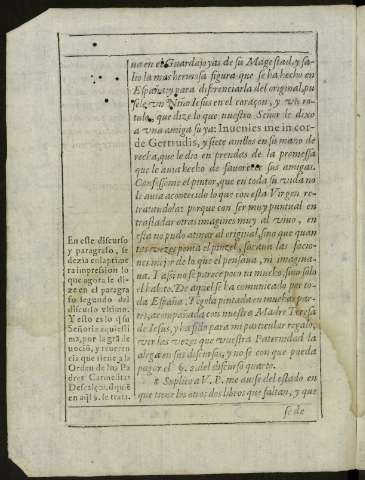 ua en el Guardajoyas de su Magestad, y sa-
lio la mas hermosa figura que se ha hecho en
España: y para diferenciarla del original, pu
sele vn Niño Iesus en el coraçon, y vn ro-
tulo, que dize lo que nuestro Señor le dixo
a vna amiga suya: Inuenies me in cor-
de Gertrudis, y siete anillos en su mano de
recha, que le dio en prendas de la promessa
que le auia hecho de fauorecer sus amigas.
Confessome el pintor, que en toda su vida no
le auia acontecido lo que con esta Virgen re-
tratandola: porque con ser muy puntual en
trasladar otras imagines muy al viuo, en
esta no pudo atinar al original, sino que quan
tas vezes ponia el pinzel, sacaua las faccio-
nes mejor de lo que el pensaua, ni imagina-
ua. Y assi no se parece poco ni mucho, sino solo
el habito. De aquel se ha comunicado por to-
da España, y
pintada en muchas par-
tes, acompañada con nuestra Madre Teresa
de Iesus, y ha sido para mi particular regalo,
ver las vezes que vuestra Paternidad la
alega en sus discursos, y no se con que pueda
pagar el §. 2. del discurso quarto.
Suplico a V. P. me auise del estado en
que tiene los otros dos libros que faltan, y que
se de
En este discurso
y paragrafo, se
dezia en la prime
ra impresion lo
que agora se di-
ze en el paragra
fo segundo del
discurso vltimo.
Y esto es lo q̃ su
Señoria aqui esti
ma, por la grã de
uociõ, y reueren
cia que tiene a la
Orden de los Pa
dres Carmelitas
Descalços, d quiẽ
en aq̃l §. se trata.